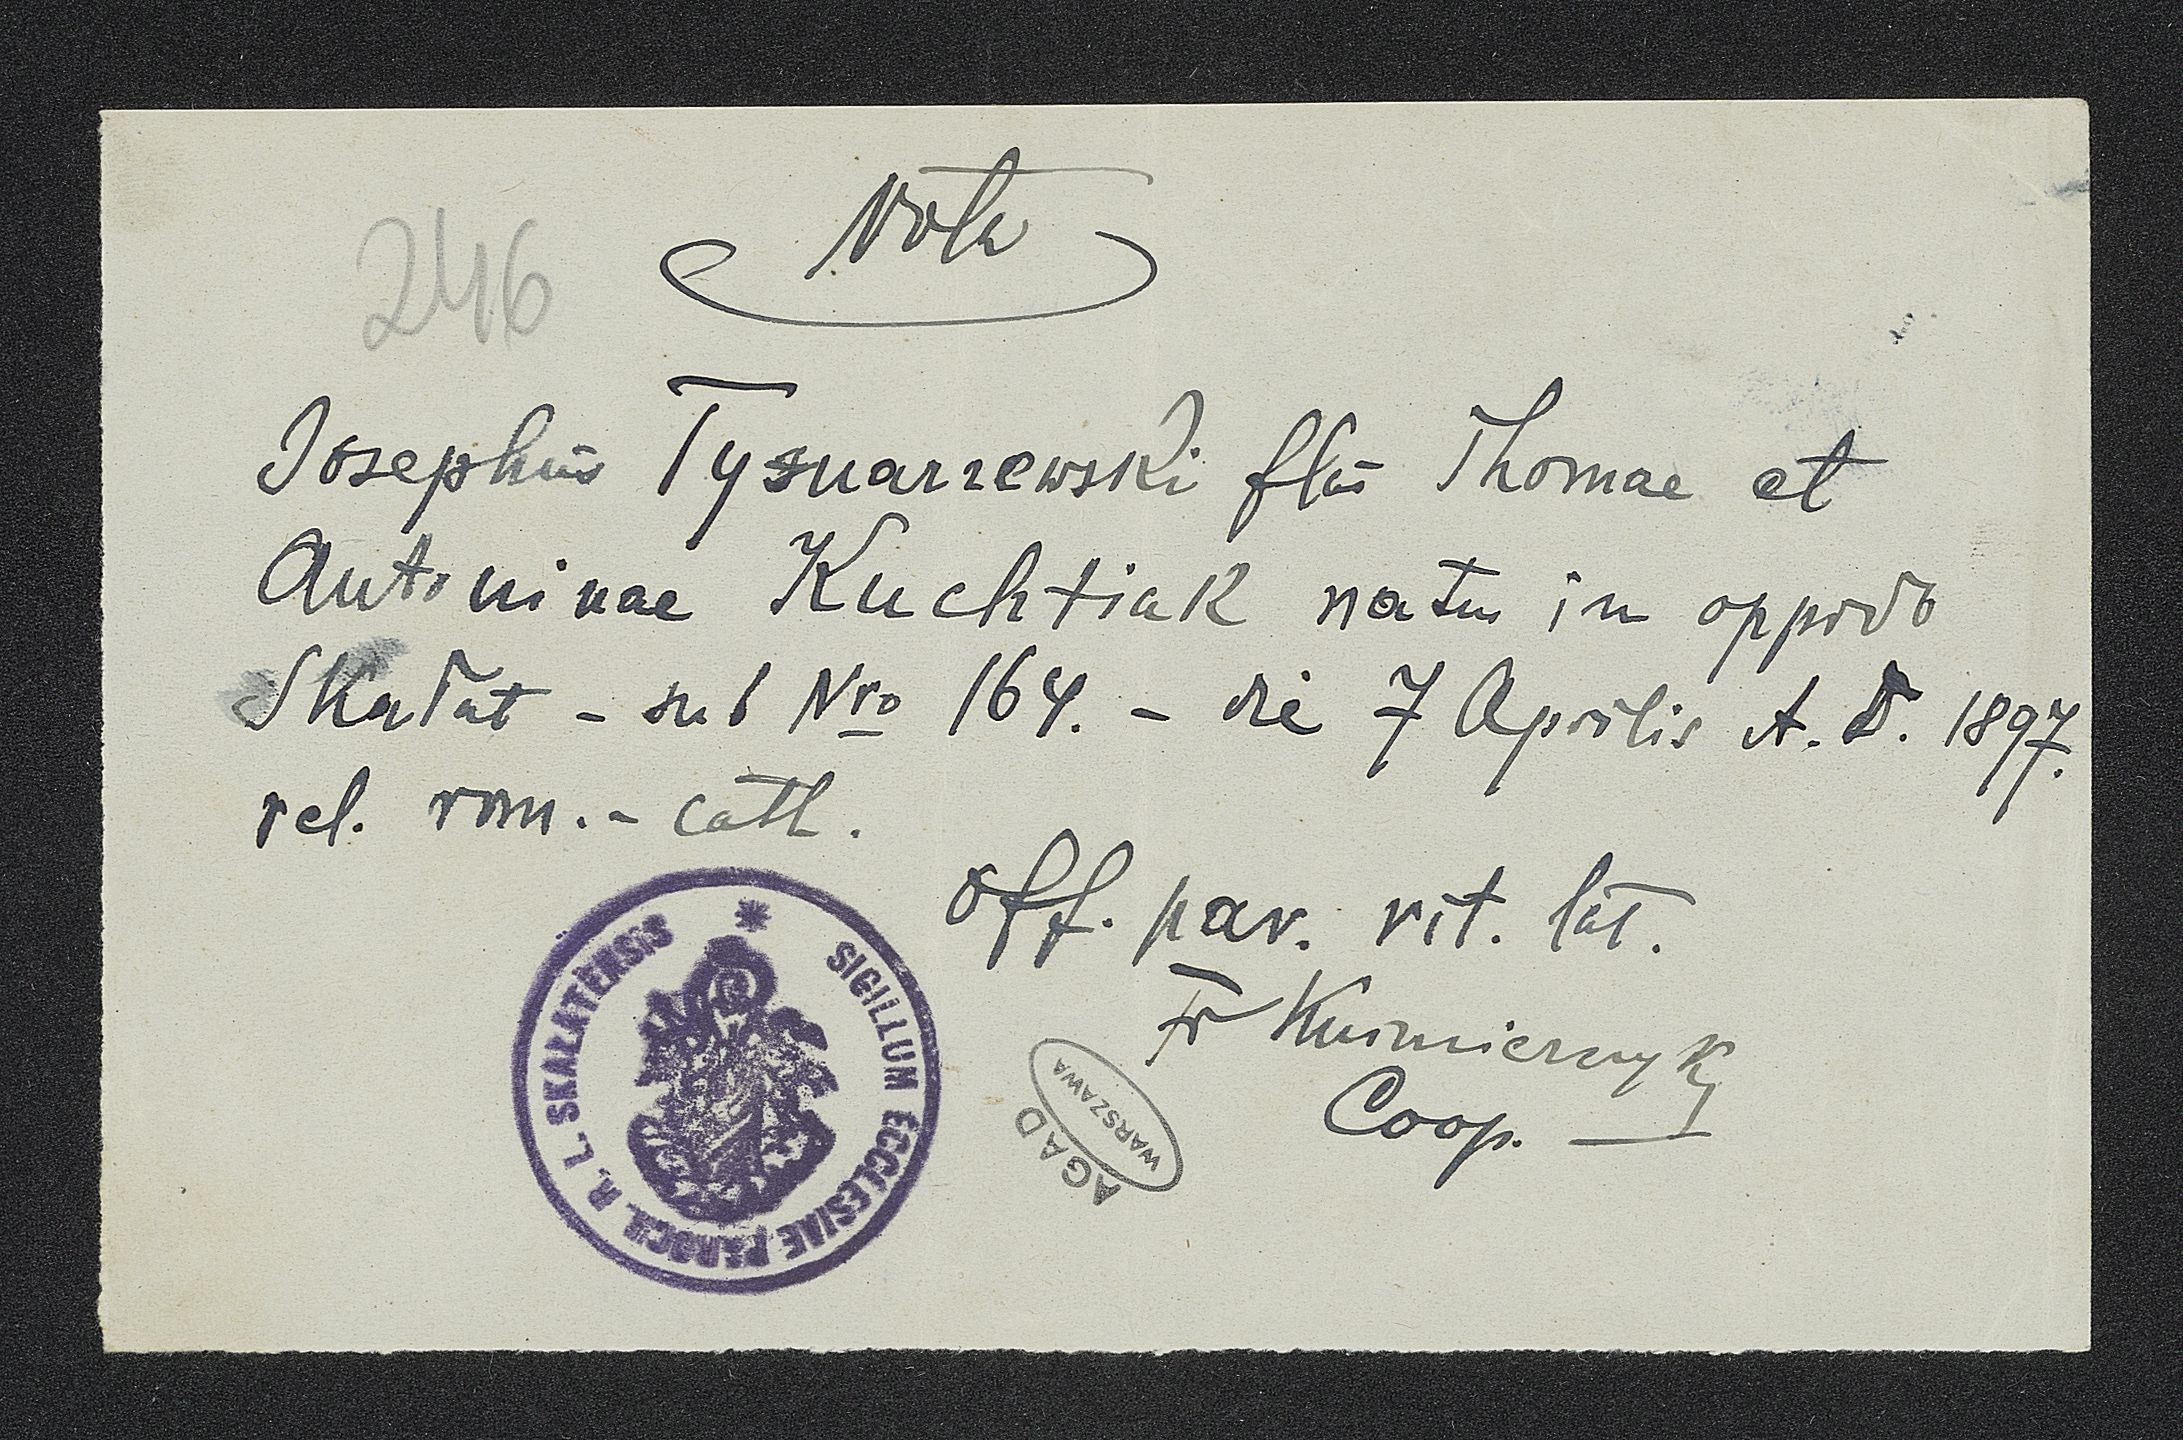 Nota
246
Josephus Tysnarzewski flūs Thomae et
Antoninae Kuchtiak natus in oppido
Skałat - sub Nro 164. - die 7 Aprilis A. D. 1897.
rel. rom. - cath.
Off. par. rit. lat.
Fr
Coop.
SIGILLUM ECCLESIAE PAROCH. R. L. SKAŁATENSIS
AGAD
WARSZAWA